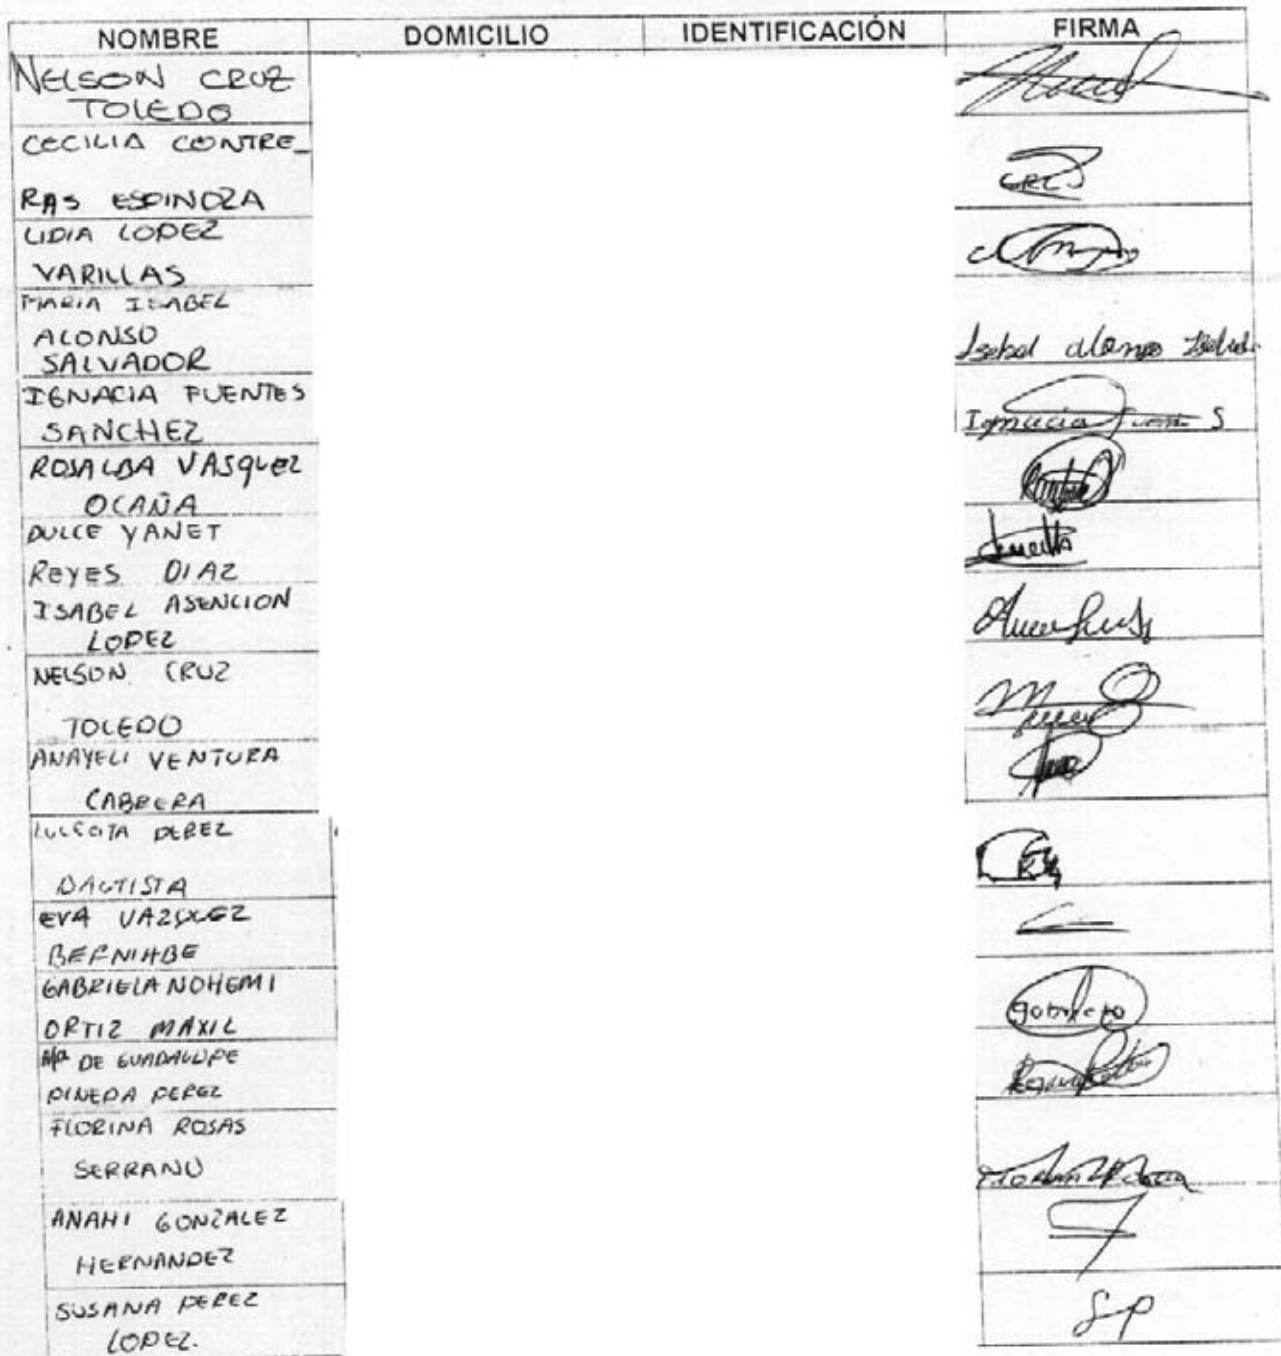 NOMBRE DOMICILIO IDENTIFICACIÓN FIRMA
NELSON CRUZ
TOLEDO
CECILIA CONTRE_
RAS ESPINOZA
LIDIA LOPEZ
VARILLAS
MARIA ISABEL
ALONSO
SALVADOR Isabel alonso
IGNACIA FUENTES
SANCHEZ Ignacia S
ROSALBA VASQUEZ
OCAÑA
DULCE YANET
REYES DIAZ
ISABEL ASENCION
LOPEZ
NELSON CRUZ
TOLEDO
ANAYELI VENTURA
CABRERA
PEREZ
BAUTISTA
EVA VAZQUEZ
BERNHABE
GABRIELA NOHEMI
ORTIZ MAXIL
Ma DE GUADALUPE
PINEDA PEREZ
FLORINA ROSAS
SERRANO
ANAHI GONZALEZ
HERNANDEZ
SUSANA PEREZ
LOPEZ. SP